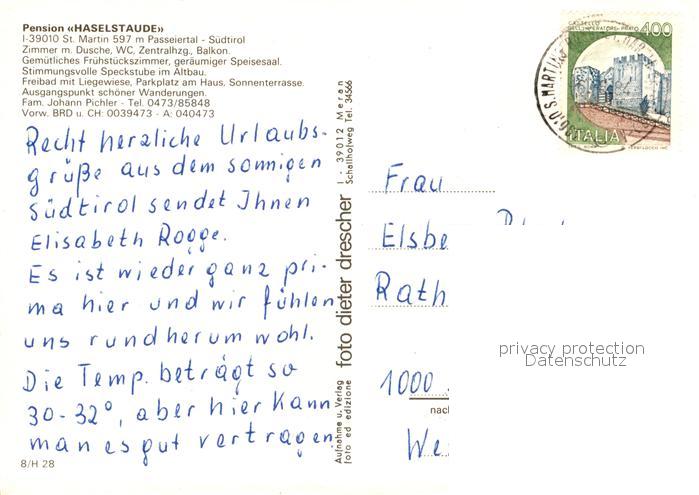 Pension «HASELSTAUDE»
I-39010 St. Martin 597 m Passeiertal - Südtirol
Zimmer m. Dusche, WC, Zentralhzg., Balkon.
Gemütliches Frühstückszimmer, geräumiger Speisesaal.
Stimmungsvolle Speckstube im Altbau.
Freibad mit Liegewiese, Parkplatz am Haus, Sonnenterrasse.
Ausgangspunkt schöner Wanderungen.
Fam. Johann Pichler - Tel. 0473/85848
Vorw. BRD u. CH: 0039473 - A: 040473
Recht herzliche Urlaubs-
grüße aus dem sonnigen
Südtirol sendet Ihnen
Elisabeth Rogge.
Es ist wieder ganz pri-
ma hier und wir fühlen
uns rundherum wohl.
Die Temp. beträgt so
30-32°, aber hier kann
man es gut vertragen.
8/H 28
Aufnahme u. Verlag
foto ed edizione
foto dieter drescher
I - 39012 Meran
Schallhofweg Tel. 34566
CASTELLO
DELL'IMPERATORE - PRATO
400
ITALIA
Frau
Elsbe
Rath
1000
nach
We
privacy protection
Datenschutz